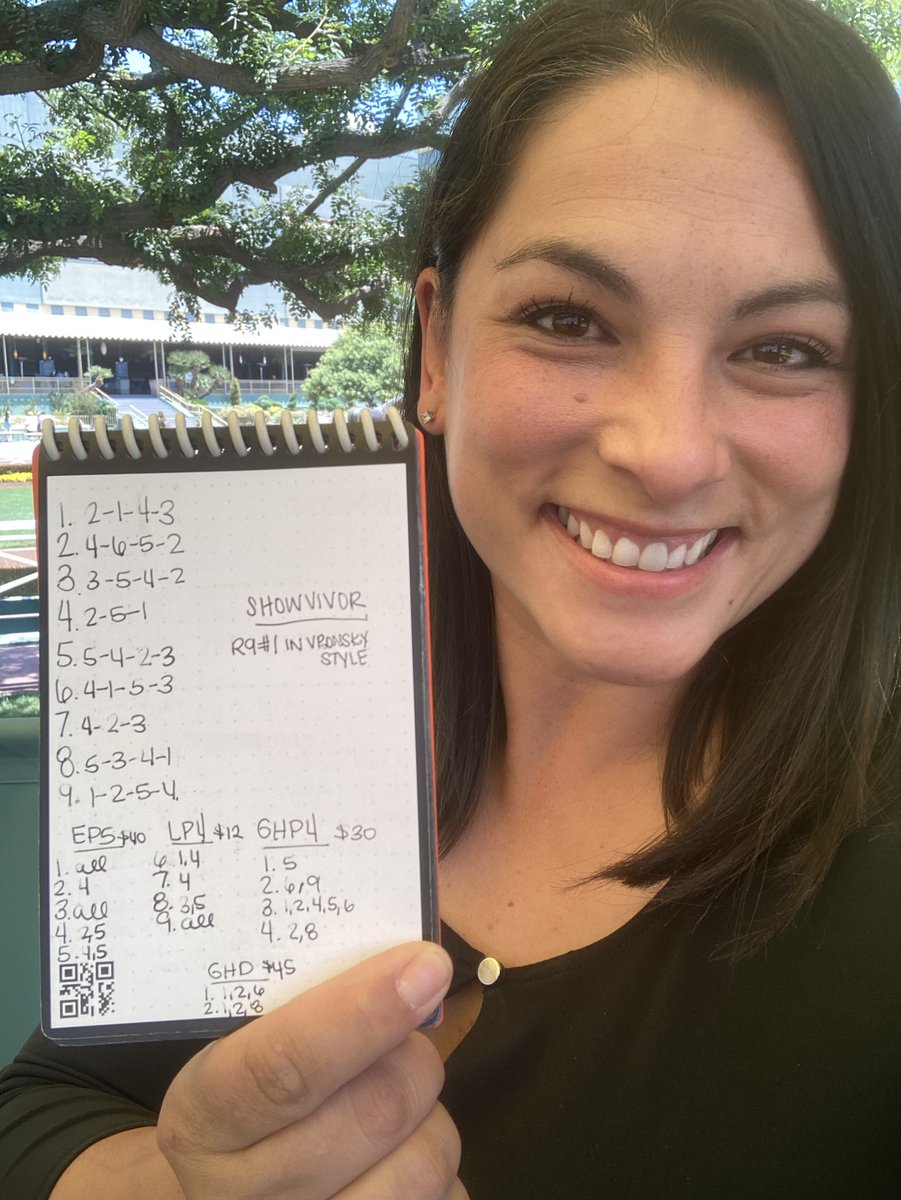 1. 2-1-4-3
2. 4-6-5-2
3. 3-5-4-2
4. 2-5-1
SHOWVIVOR
5. 5-4-2-3
R9#1 IN VRONSKY
STYLE
6. 4-1-5-3
7. 4-2-3
8. 5-3-4-1
9. 1-2-5-4
EP5 $40
1. all
2. 4
3. all
4. 2,5
5. 4,5
LP4 $12
6. 1,4
7. 4
8. 3,5
9. all
GHP4 $30
1. 5
2. 6,9
3. 1,2,4,5,6
4. 2,8
GHD $45
1. 1,2,6
2. 1,2,8